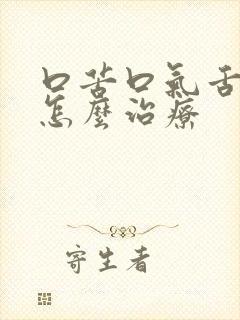 口苦口氣舌
怎麼治療
寄生者